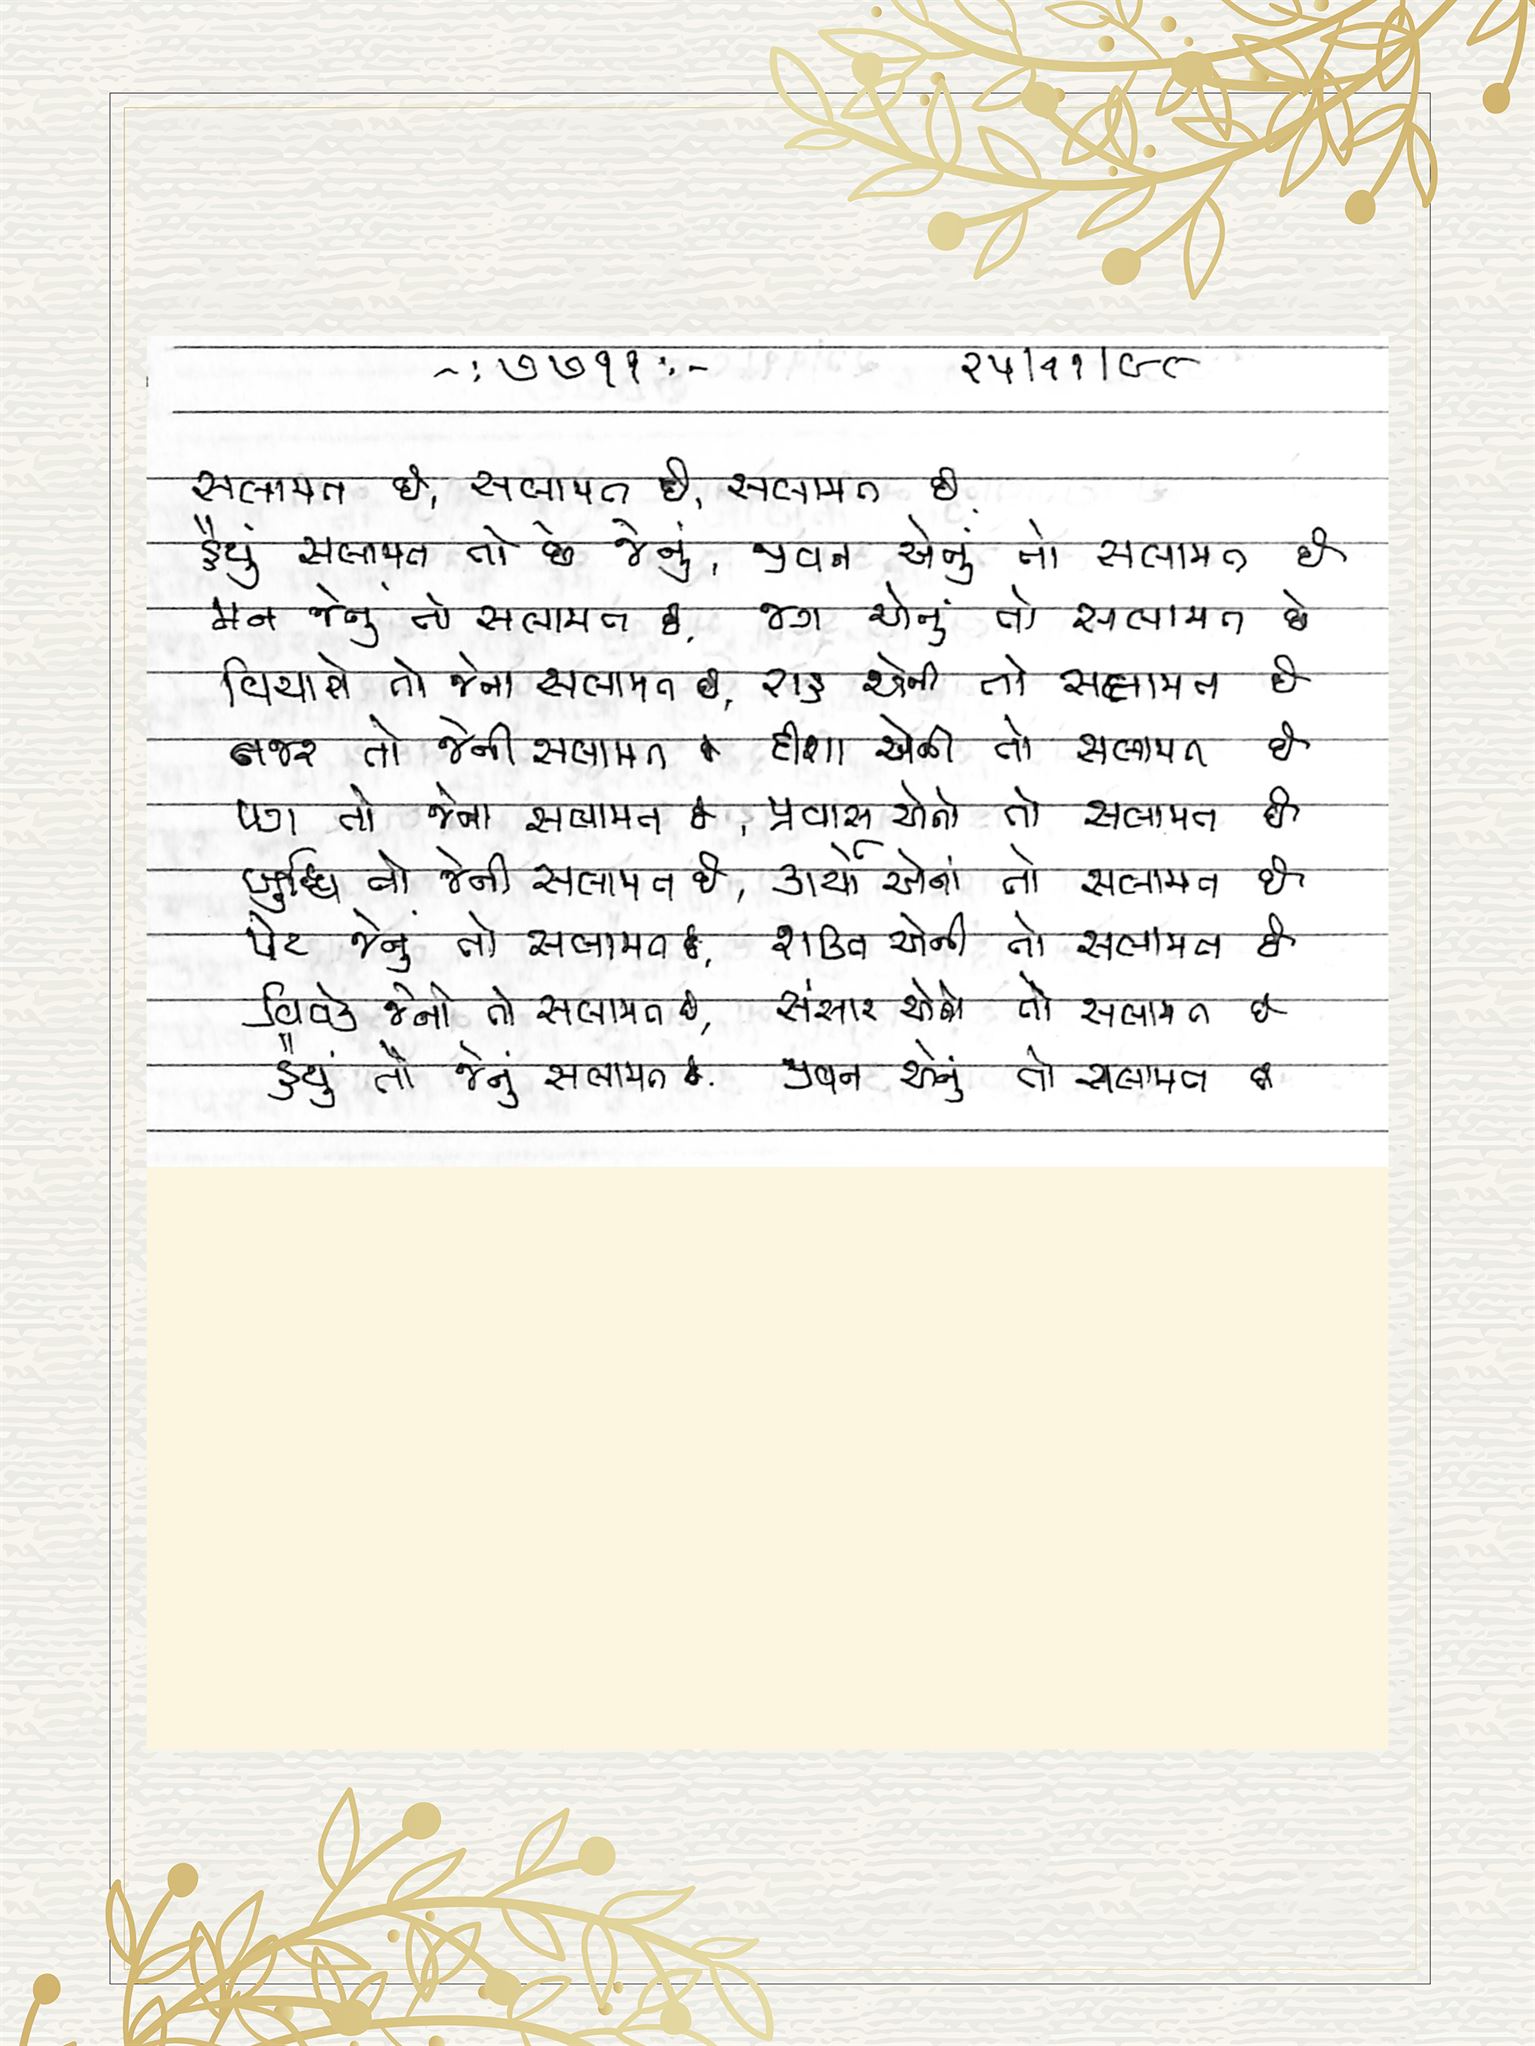 -: ૭૭૧૧ :- ૨૫/૧૧/૯૮
સલામત છે, સલામત છે, સલામત છે
હૈયું સલામત તો છે જેનું, જીવન એનું તો સલામત છે
મન જેનું તો સલામત છે, જગ એનું તો સલામત છે
વિચારો તો જેના સલામત છે, રાહ એની તો સલામત છે
નજર તો જેની સલામત છે દીશા એની તો સલામત છે
પગ તો જેના સલામત છે, પ્રવાસ એનો તો સલામત છે
બુદ્ધિ તો જેની સલામત છે, કાર્યો એનાં તો સલામત છે
પેટ જેનું તો સલામત છે, શક્તિ એની તો સલામત છે
વિવેક જેનો તો સલામત છે, સંસાર એનો તો સલામત છે
હૈયું તો જેનું સલામત છે. જીવન એનું તો સલામત છે